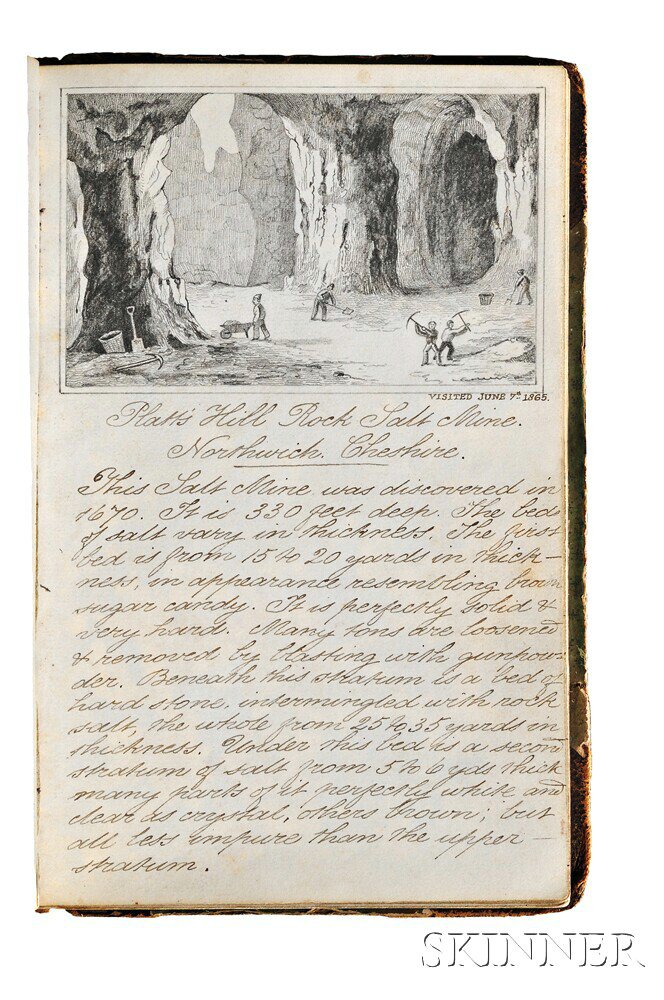 VISITED JUNE 7th 1865.
Platt's Hill Rock Salt Mine.
Northwich. Cheshire.
This Salt Mine was discovered in
1670. It is 330 feet deep. The beds
of salt vary in thickness. The first
bed is from 15 to 20 yards in thick-
ness, in appearance resembling brown
sugar candy. It is perfectly solid &
very hard. Many tons are loosened
& removed by blasting with gunpow-
der. Beneath this stratum is a bed of
hard stone, intermingled with rock
salt, the whole from 25 to 35 yards in
thickness. Under this bed is a second
stratum of salt from 5 to 6 yds thick
many parts of it perfectly white and
clear as crystal, others brown; but
all less impure than the upper
stratum.
SKINNER